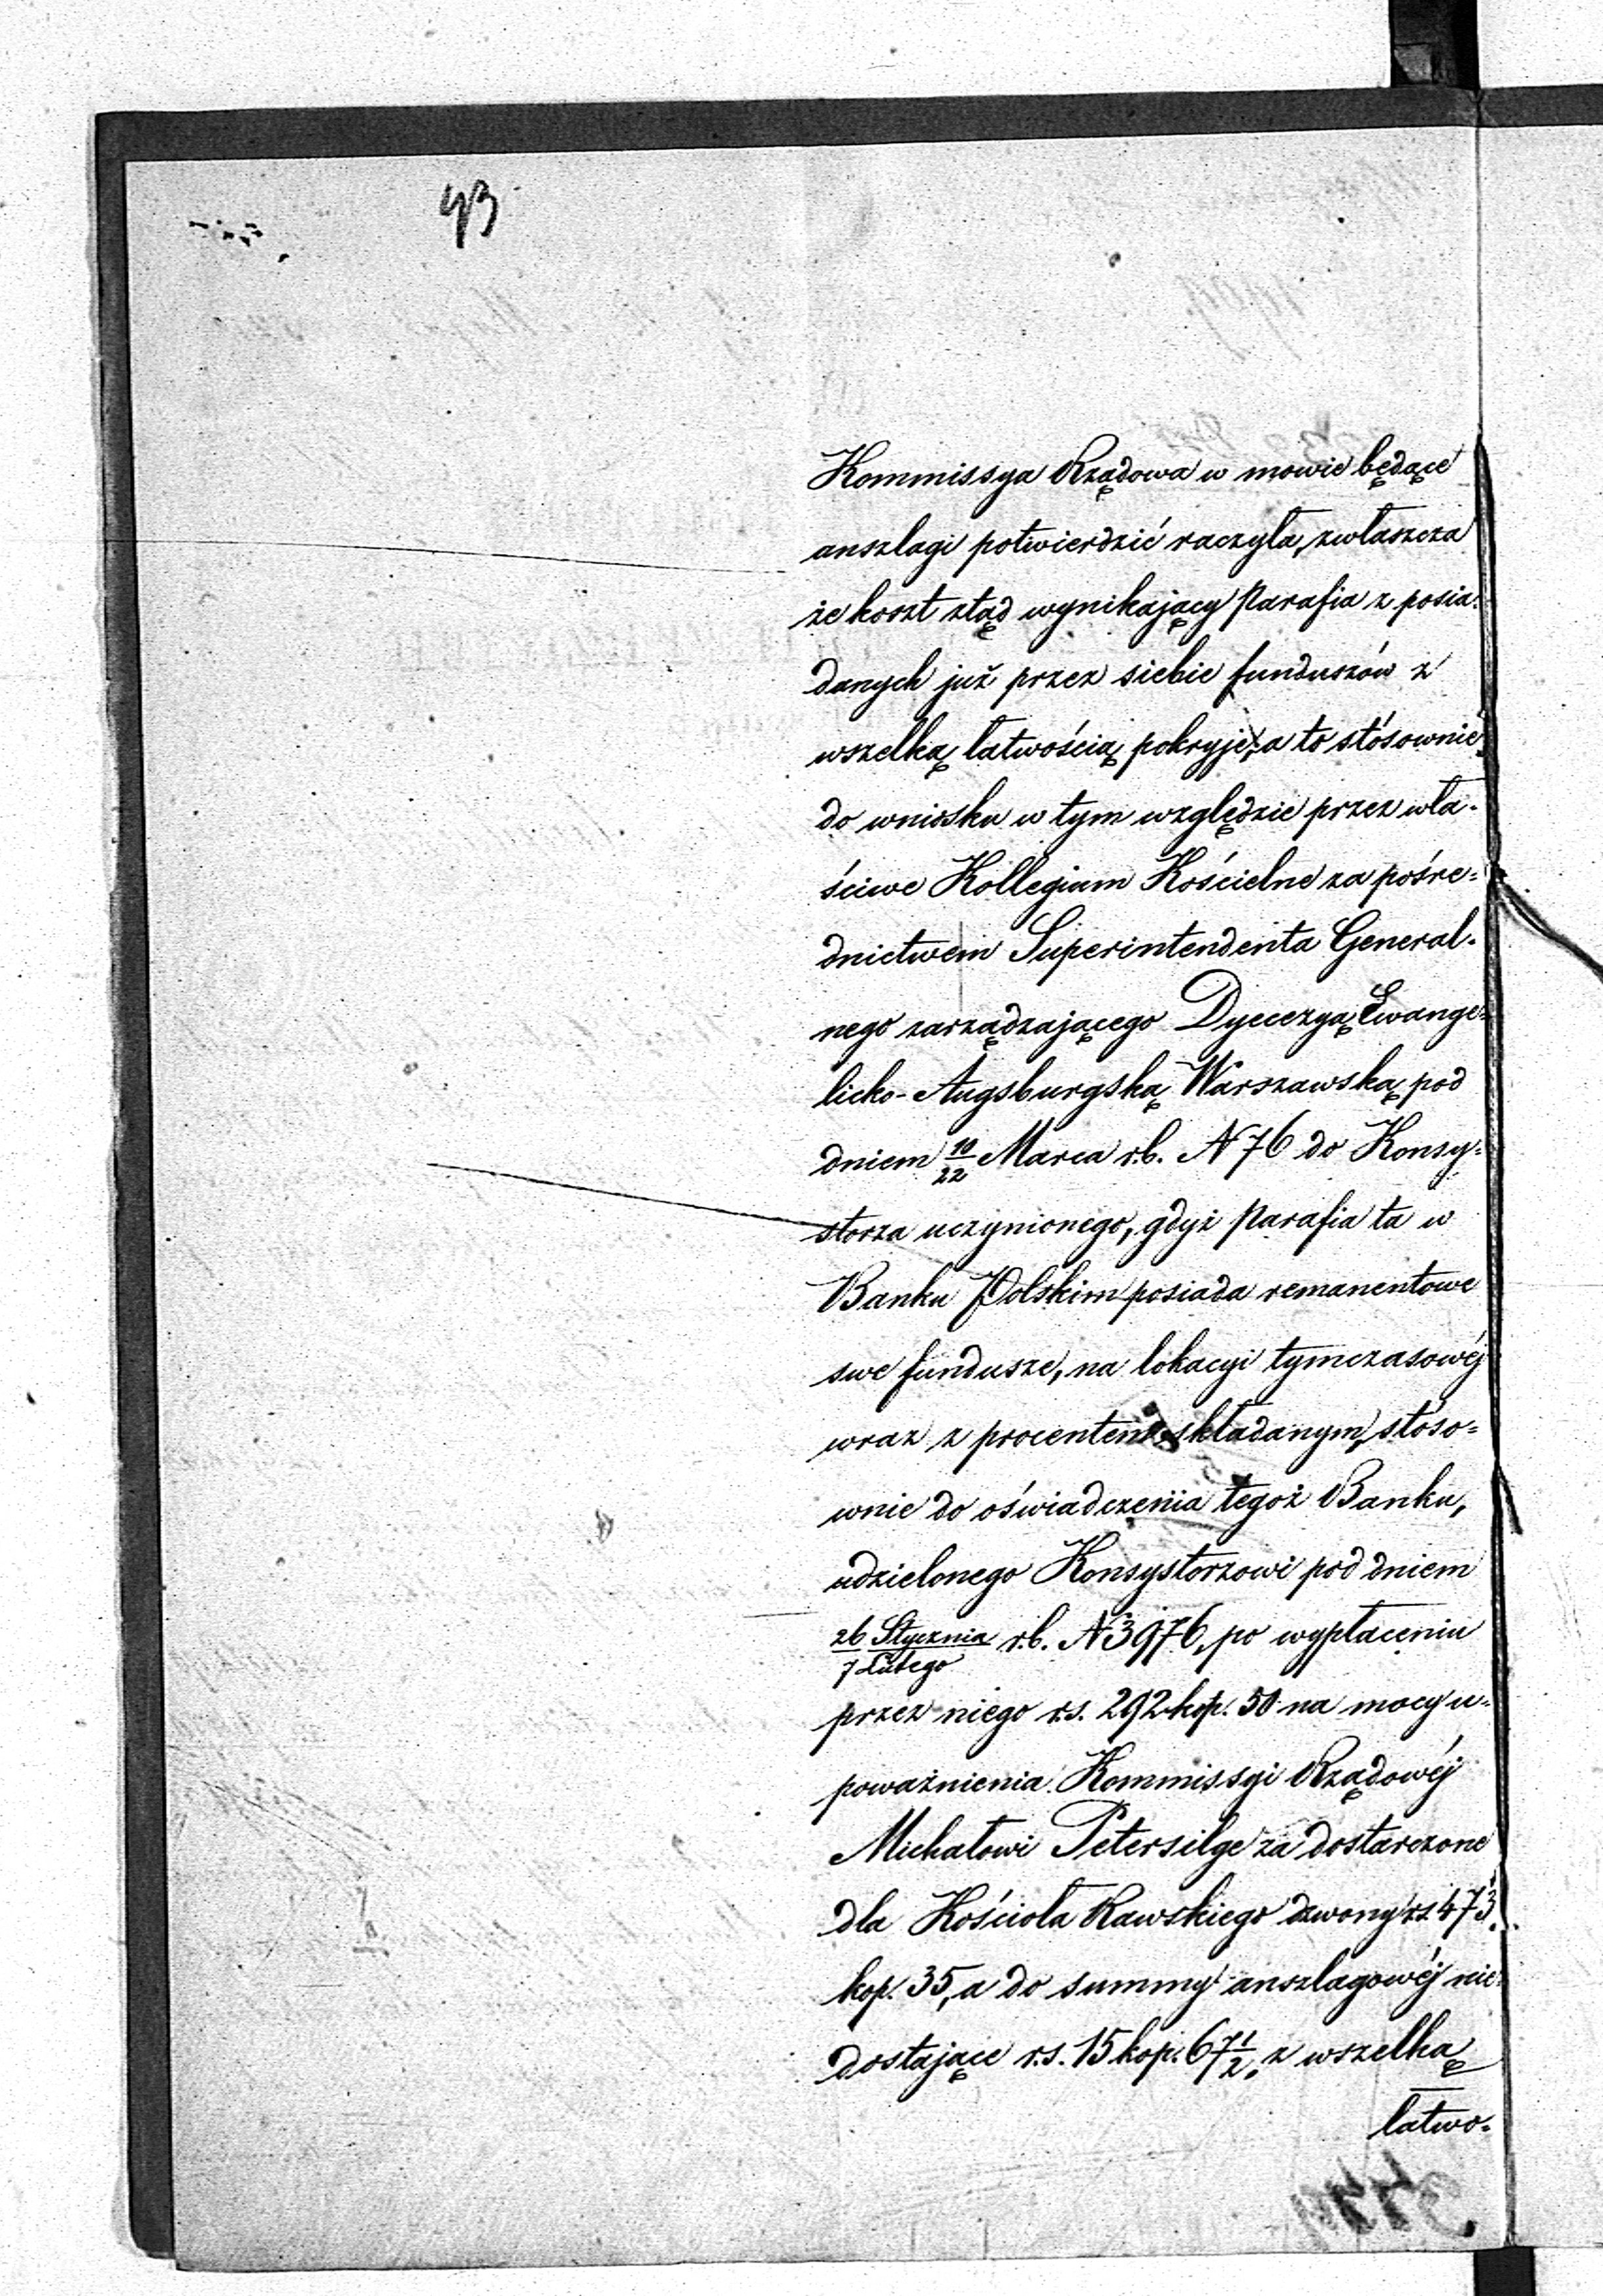 43
Kommissya Rządowa w mowie będące
anszlagi potwierdzić raczyła, zwłaszcza
że koszt ztąd wynikający Parafia z posia-
danych już przez siebie funduszów z
wszelką łatwością pokryje, a to stósownie
do wniosku w tym względzie przez wła-
ściwe Kollegium Kościelne za pośre-
dnictwem Superintendenta General-
nego zarządzającego Dyecezyą Ewange-
licko-Augsburgską Warszawską pod
dniem 10/22 Marca r.b. N 76 do Konsy-
storza uczynionego, gdyż Parafia ta w
Banku Polskim posiada remanentowe
swe fundusze, na lokacyi tymczasowéj
wraz z procentem składanym, stoso-
wnie do oświadczenia tegoż Banku,
udzielonego Konsystorzowi pod dniem
26 Stycznia/7 Lutego r.b. N 3976, po wypłaceniu
przez niego r.s. 292 kop. 50 na mocy u-
poważnienia Kommissyi Rządowéj
Michałowi Petersilge za dostarczone
dla Kościoła Rawskiego dzwony rs 473
kop. 35, a do summy anszlagowéj nie-
dostające r.s. 15 kop. 67 1/2, z wszelką
łatwo-